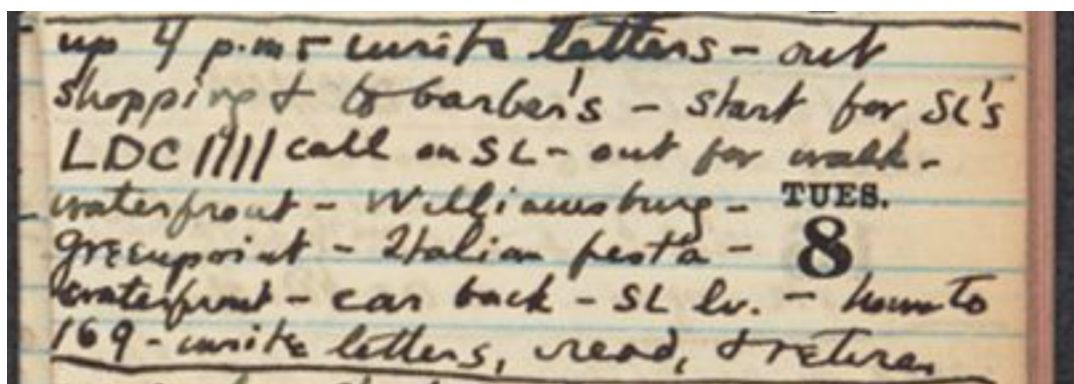 up 4 p.m. - write letters - out
shopping & to barber's - start for SL's
LDC //// call on SL - out for walk -
waterfront - Williamsburg - TUES.
greenpoint - Italian festa - 8
waterfront - car back - SL lv. - home to
169 - write letters, read, & retire.